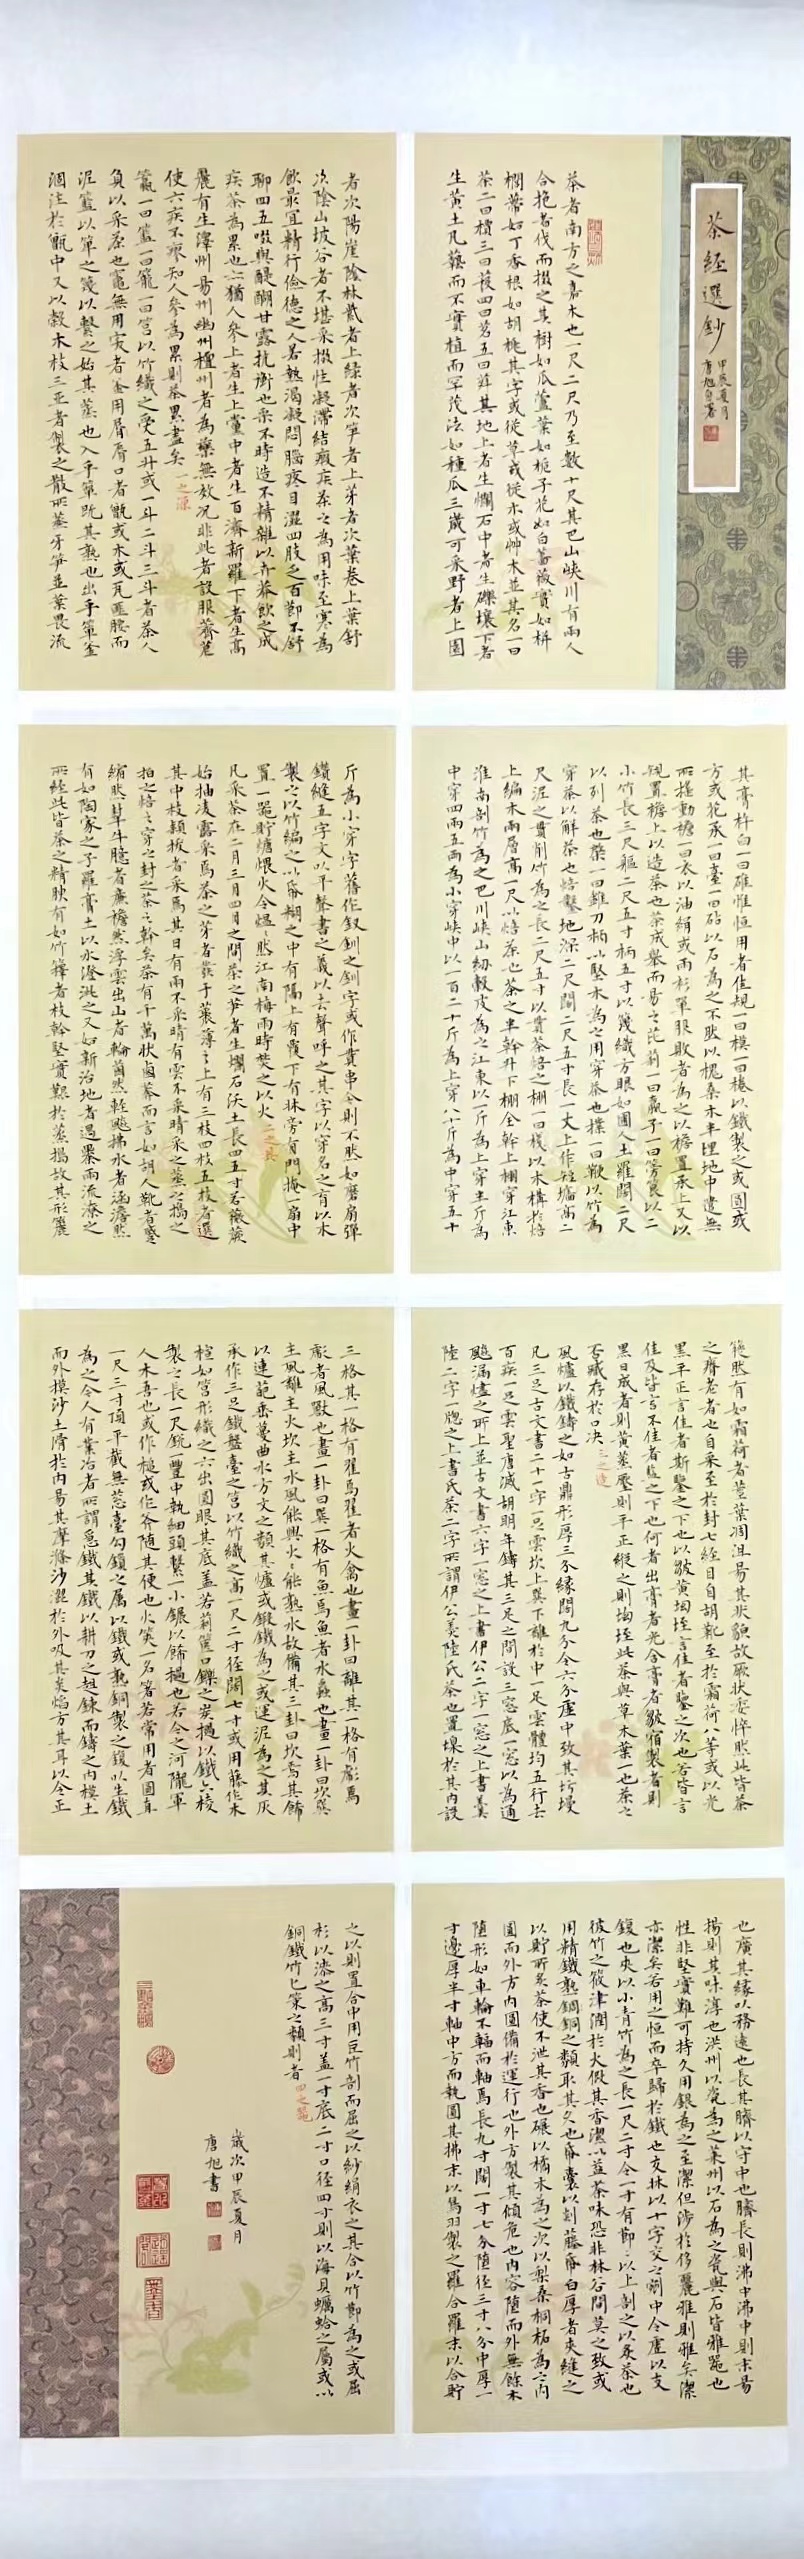 茶經選鈔
甲辰夏月
唐旭自署
茶者南方之嘉木也一尺二尺乃至數十尺其巴山峽川有兩人
合抱者伐而掇之其樹如瓜蘆葉如梔子花如白薔薇實如栟
櫚蒂如丁香根如胡桃其字或從草或從木或艸木並其名一曰
茶二曰檟三曰蔎四曰茗五曰荈其地上者生爛石中者生礫壤下者
生黃土凡藝而不實植而罕茂法如種瓜三歲可采野者上園
者次陽崖陰林紫者上綠者次笋者上芽者次葉卷上葉舒
次陰山坡谷者不堪采掇性凝滯結瘕疾茶之為用味至寒為
飲最宜精行儉德之人若熱渴凝悶腦疼目澀四肢乏百節不舒
聊四五啜與醍醐甘露抗衡也采不時造不精雜以卉莽飲之成
疾茶為累也亦猶人參上者生上黨中者生百濟新羅下者生高
麗有生澤州易州幽州檀州者為藥無效况非此者設服薺苨
使六疾不瘳知人參為累則茶累盡矣一之源
籯一曰籃一曰籠一曰筥以竹織之受五升或一斗二斗三斗者茶人
負以采茶也竈無用突者釜用脣口者甑或木或瓦匪腰而
泥籃以箄之篾以繫之始其蒸也入乎箄既其熟也出乎箄釜
涸注於甑中又以穀木枝三亞者製之散所蒸牙笋並葉畏流
其膏杵臼一曰碓惟恒用者佳規一曰模一曰棬以鐵製之或圓或
方或花承一曰臺一曰砧以石為之不然以槐桑木半埋地中遣無
所搖動襜一曰衣以油絹或雨衫單服敗者為之以襜置承上又以
規置襜上以造茶也茶成舉而易之芘莉一曰羸子一曰篣筤以二
小竹長三尺軀二尺五寸柄五寸以篾織方眼如圃人土羅闊二尺
以列茶也棨一曰錐刀柄以堅木為之用穿茶也撲一曰鞭以竹為
穿茶以解茶也焙鑿地深二尺闊二尺五寸長一丈上作短墻高二
尺泥之貫削竹為之長二尺五寸以貫茶焙之棚一曰棧以木構於焙
上編木兩層高一尺以焙茶也茶之半幹升下棚全幹上棚穿江東
淮南剖竹為之巴川峽山紉穀皮為之江東以一斤為上穿半斤為
中穿四兩五兩為小穿峽中以一百二十斤為上穿八十斤為中穿五十
斤為小穿字舊作釵釧之釧字或作貫串今則不然如磨扇彈
鑽縫五字文以平聲書之義以去聲呼之其字以穿名之育以木
製之以竹編之以紙糊之中有隔上有覆下有牀旁有門掩一扇中
置一器貯煻煨火令熅熅然江南梅雨時焚之以火二之具
凡采茶在二月三月四月之間茶之笋者生爛石沃土長四五寸若薇蕨
始抽凌露采焉茶之芽者發于叢薄之上有三枝四枝五枝者選
其中枝穎拔者采焉其日有雨不采晴有雲不采晴采之蒸之搗之
拍之焙之穿之封之茶之幹矣茶有千萬狀鹵莽而言如胡人靴者蹙
縮然犎牛臆者廉襜然浮雲出山者輪菌然輕飈拂水者涵澹然
有如陶家之子羅膏土以水澄泚之又如新治地者遇暴雨流潦之
所經此皆茶之精腴有如竹籜者枝幹堅實艱於蒸搗故其形籭
簁然有如霜荷者莖葉凋沮易其狀貌故厥狀委悴然此皆茶
之瘠老者也自采至於封七經目自胡靴至於霜荷八等或以光
黑平正言佳者斯鑒之下也以皺黃坳垤言佳者鑒之次也若皆言
佳及皆言不佳者鑒之上也何者出膏者光含膏者皺宿製者則
黑日成者則黃蒸壓則平正縱之則坳垤此茶與草木葉一也茶之
否臧存於口决三之造
風爐以鐵鑄之如古鼎形厚三分緣闊九分令六分虛中致其圬墁
凡三足古文書二十一字一足雲坎上巽下離於中一足雲體均五行去
百疾一足雲聖唐滅胡明年鑄其三足之間設三窓底一窓以為通
飈漏燼之所上並古文書六字一窓之上書伊公二字一窓之上書羹
陸二字一窓之上書氏茶二字所謂伊公羹陸氏茶也置墆於其内設
三格其一格有翟焉翟者火禽也畫一卦曰離其一格有彪焉
彪者風獸也畫一卦曰巽一格有魚焉魚者水蟲也畫一卦曰坎巽
主風離主火坎主水風能興火火能熟水故備其三卦曰坎焉其飾
以連葩垂蔓曲水方文之類其爐或鍛鐵為之或運泥為之其灰
承作三足鐵盤臺之筥以竹織之高一尺二寸徑闊七寸或用藤作木
楦如筥形織之六出圓眼其底盖若莉篋口鑠之炭撾以鐵六棱
製之長一尺銳一豐中執細頭繫一小鐶以飾撾也若今之河隴軍
人木吾也或作槌或作斧隨其便也火筴一名箸若常用者圓直
一尺三寸頂平截無葱臺勾鎖之屬以鐵或熟銅製之鍑以生鐵
為之今人有業冶者所謂急鐵其鐵以耕刀之趄鍊而鑄之内模土
而外模沙土滑於内易其摩滌沙澀於外吸其炎焰方其耳以令正
也廣其緣以務遠也長其臍以守中也臍長則沸中沸中則末易
揚則其味淳也洪州以瓷為之萊州以石為之瓷與石皆雅器也
性非堅實難可持久用銀為之至潔但涉於侈麗雅則雅矣潔
亦潔矣若用之恒而卒歸於鐵也交牀以十字交之剜中令虛以支
鍑也夾以小青竹為之長一尺二寸令一寸有節節以上剖之以炙茶也
彼竹之筱津潤於火假其香潔以益茶味恐非林谷間莫之致或
用精鐵熟銅之類取其久也紙囊以剡藤紙白厚者夾縫之
以貯所炙茶使不泄其香也碾以橘木為之次以梨桑桐柘為之内
圓而外方内圓備於運行也外方製其傾危也内容墮而外無餘木
墮形如車輪不輻而軸焉長九寸闊一寸七分墮徑三寸八分中厚一
寸邊厚半寸軸中方而執圓其拂末以鳥羽製之羅合羅末以合貯
之以則置合中用巨竹剖而屈之以紗絹衣之其合以竹節為之或屈
杉以漆之高三寸盖一寸底二寸口徑四寸則以海貝蠣蛤之屬或以
銅鐵竹匕策之類則者四之器
歲次甲辰夏月
唐旭書